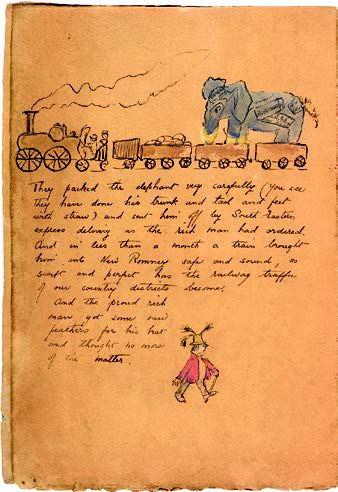 They packed the elephant very carefully (You see
they have done his trunk and tail and feet
with straw) and sent him off by South Eastern
express delivery as the rich man had ordered.
And in less than a month a train brought
him into New Romney safe and sound, so
swift and perfect has the railway traffic
of our country districts become.
And the proud rich
man got some new
feathers for his hat
and thought no more
of the matter.